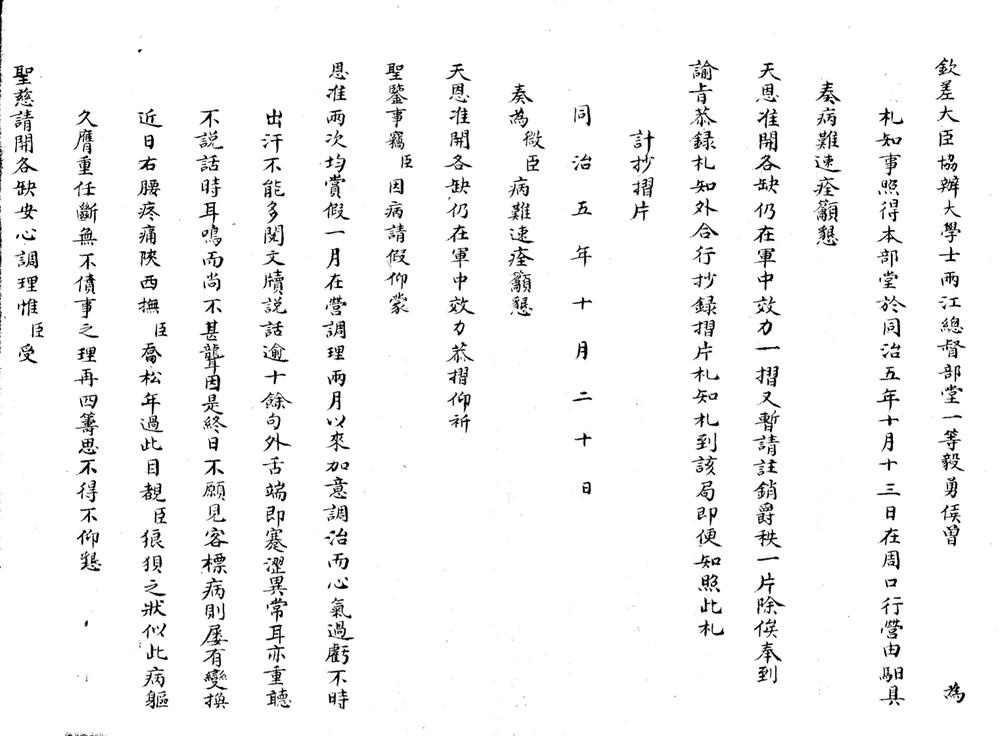 欽差大臣協辦大學士兩江總督部堂一等毅勇侯曾　為
札知事照得本部堂於同治五年十月十三日在周口行營由馹具
奏病難速痊籲懇
天恩准開各缺仍在軍中效力一摺又暫請註銷爵秩一片除俟奉到
諭旨恭錄札知外合行抄錄摺片札知札到該局即便知照此札
計抄摺片
同治五年十月二十日
奏為微臣病難速痊籲懇
天恩准開各缺仍在軍中效力恭摺仰祈
聖鑒事竊臣因病請假仰蒙
恩准兩次均賞假一月在營調理兩月以來加意調治而心氣過虧不時
出汗不能多閱文牘說話逾十餘句外舌端即蹇澀異常耳亦重聽
不說話時耳鳴而尚不甚聾因是終日不願見客標病則屢有變換
近日右腰疼痛陝西撫臣喬松年過此目覩臣狼狽之狀似此病軀
久膺重任斷無不僨事之理再四籌思不得不仰懇
聖慈請開各缺安心調理惟臣受